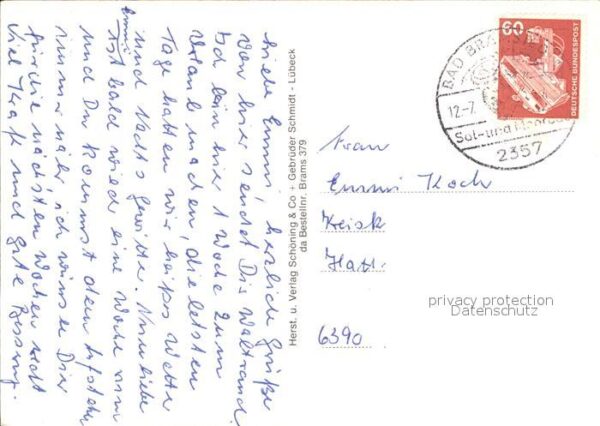 Liebe Emmi, herzliche Grüße
von hier sendet Dir Waltraud.
bin hier 1 Woche zum
Urlaub machen, die letzten
Tage hatten wir heißes Wetter
und Nachts Gewitter. Nun liebe
Emmi
ist bald wieder eine Woche rum
und Du kommst dem Aufstehen
immer näher ich wünsche Dir
für die nächsten Wochen recht
viel Kraft und gute Besserung.
Herst. u. Verlag Schöning & Co + Gebrüder Schmidt - Lübeck
da Bestellnr. Brams 379
60
DEUTSCHE BUNDESPOST
BAD BRA
12.-7.
Sol- und Moor
2357
Frau
Emmi Koch
6390
privacy protection
Datenschutz